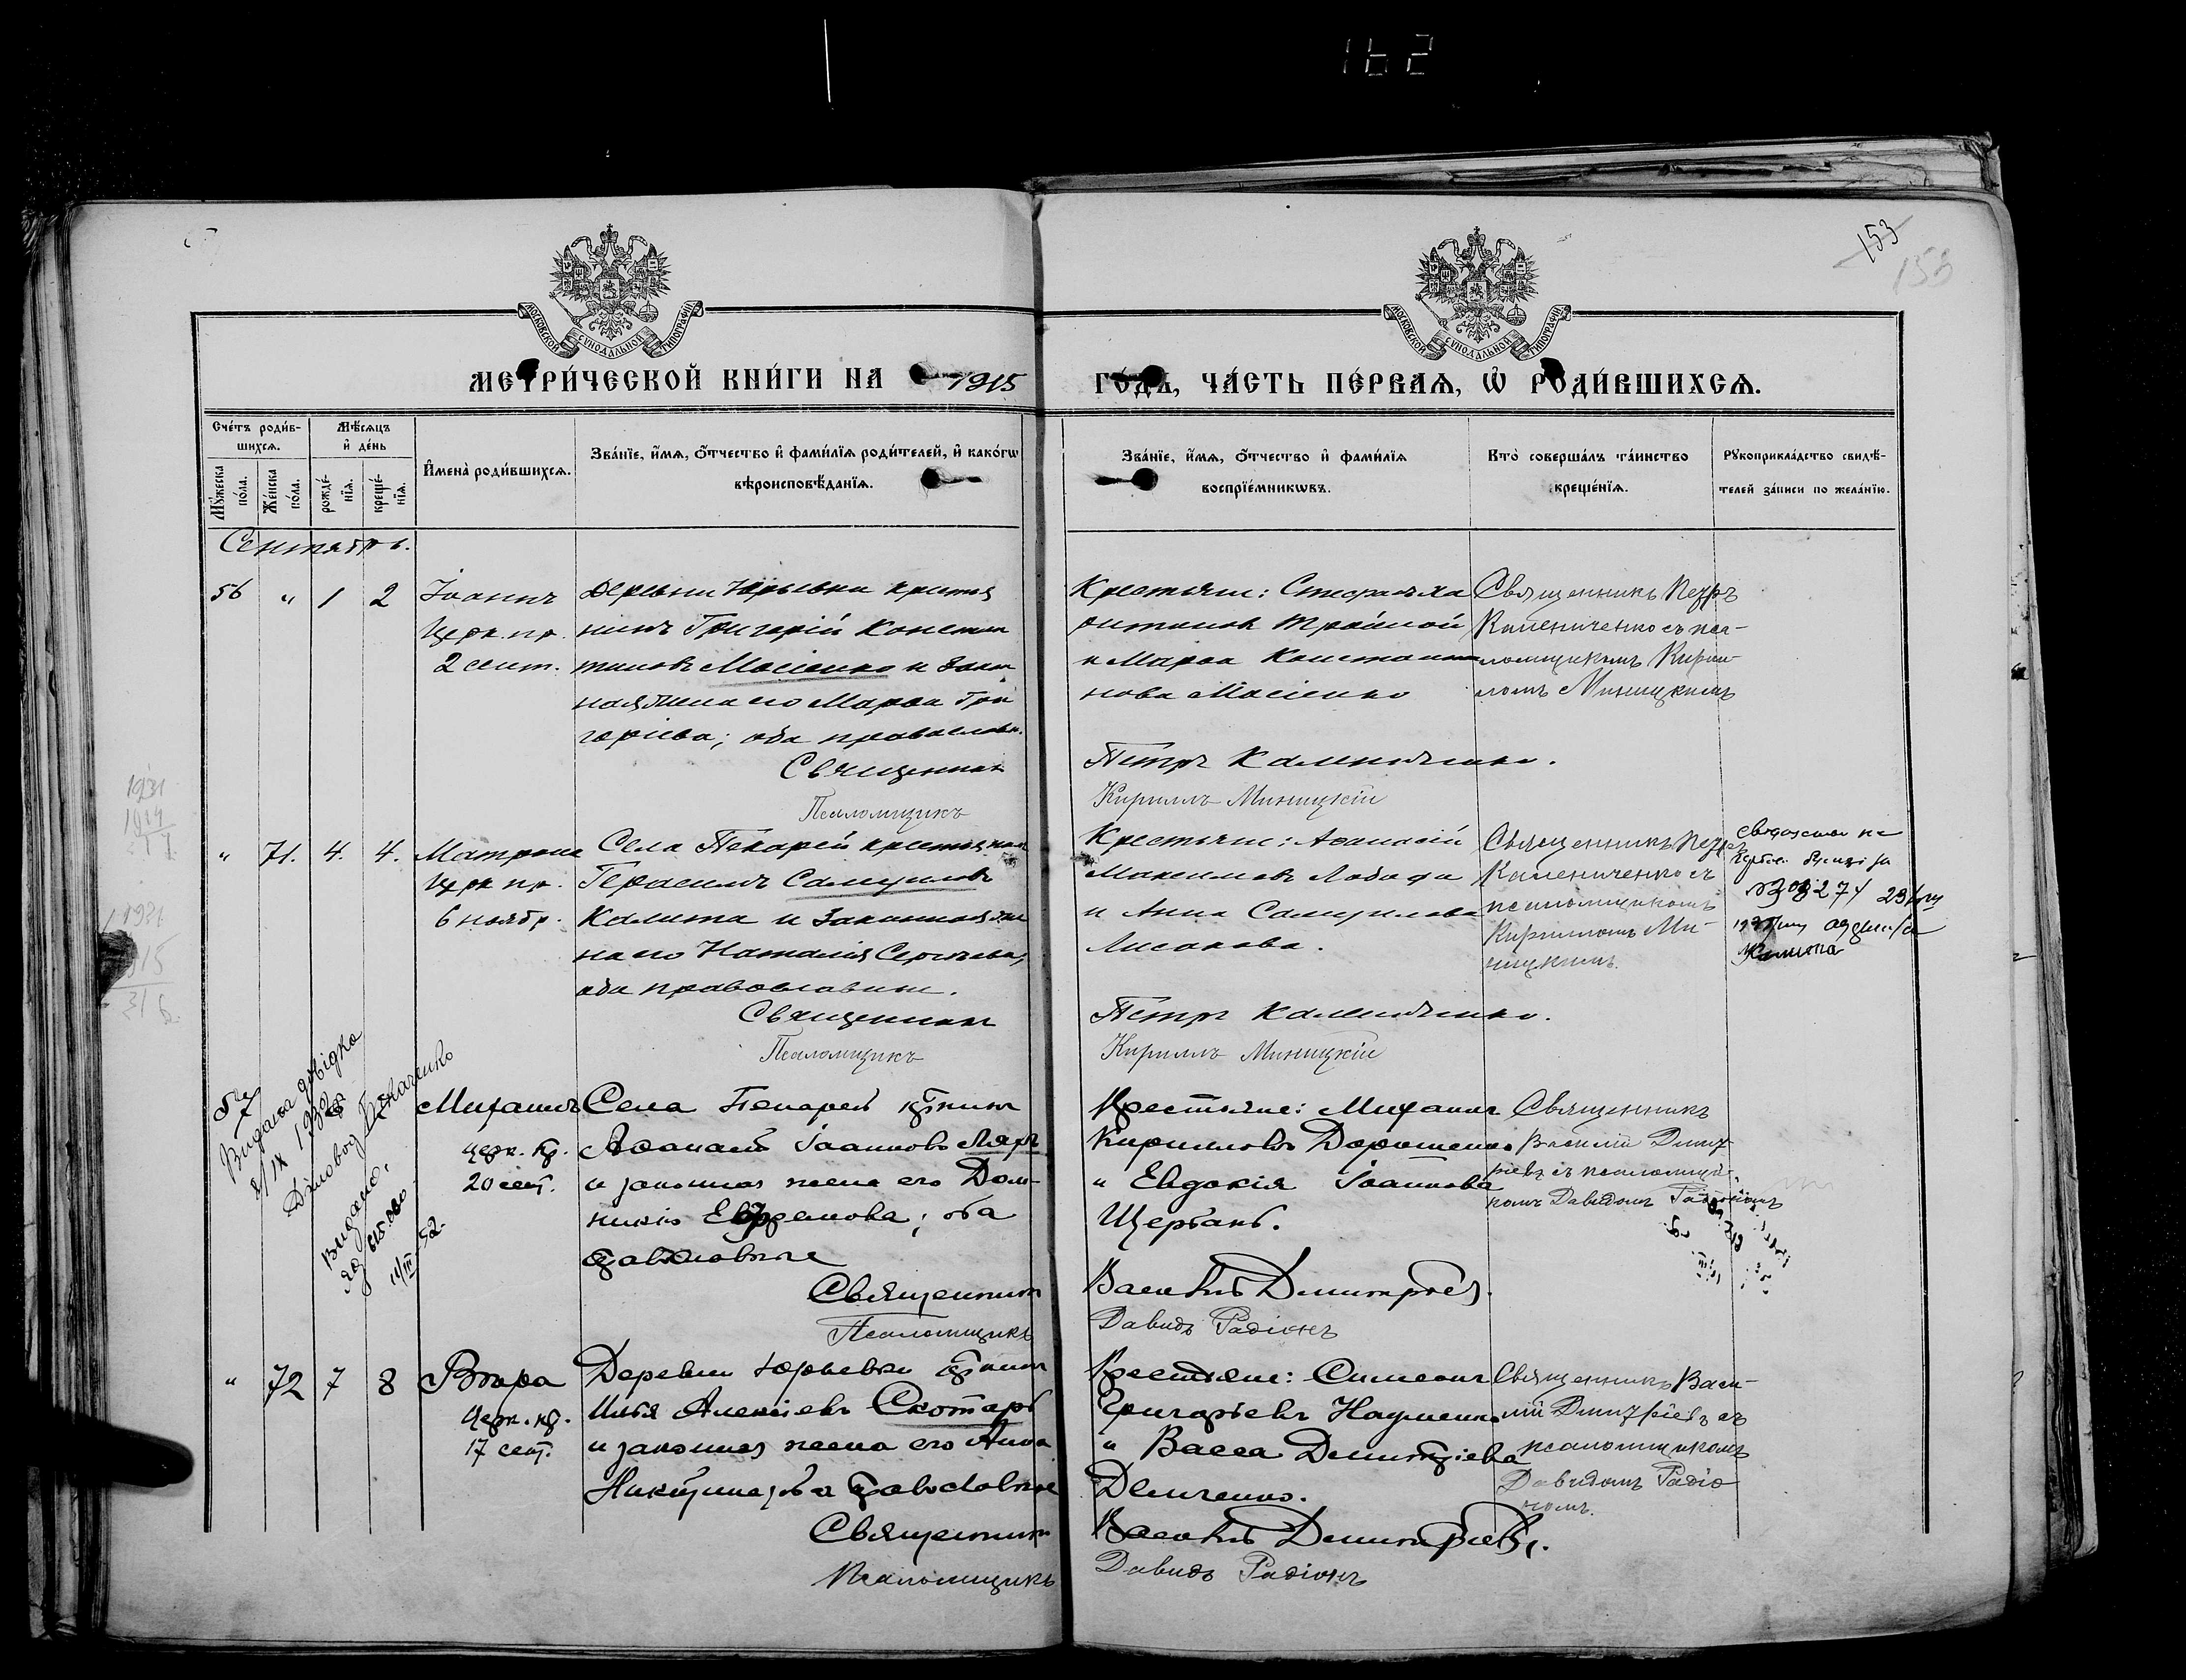 162
153
158
МОСКОВСКОЙ СУНОДАЛЬНОЙ ТИПОГРАФІИ
МОСКОВСКОЙ СУНОДАЛЬНОЙ ТИПОГРАФІИ
МЕТРИ́ЧЕСКОЙ КНИ́ГИ НА 1915
ГО́ДЪ, ЧА́СТЬ ПЕ́РВАѦ, Ѡ҆ РОДИ́ВШИХСѦ.
Сче́тъ роди́в-
шихсѧ.
Мѣ́сѧцъ
и҆ де́нь
Мꙋ́жеска
по́ла.
Же́нска
по́ла.
рожде́-
нїѧ.
креще́-
нїѧ.
И҆мена̀ роди́вшихсѧ.
Зва́нїе, и҆́мѧ, ѻ҆́тчество и҆ фами́лїѧ роди́телей, и҆ како́гѡ
вѣроисповѣ́данїѧ.
Зва́нїе, и҆́мѧ, ѻ҆́тчество и҆ фами́лїѧ
воспрїе́мникѡвъ.
Кто̀ соверша́лъ та́инство
креще́нїѧ.
Рꙋкоприкла́дство свидѣ́-
телей за́писи по жела́нїю.
Сентябрь.
56 " 1 2
Іоаннъ
Церк. пр.
2 сент.
Деревни Юрьевки крестья
нинъ Григорій Констан
тиновъ Мосіенко и закон
ная жена его Марѳа Гри
горіева; оба православн.
Священникъ
Псаломщикъ
Крестьяне:
и Марѳа Константи
нова Мосіенко
Петръ Камениченко.
Кирилъ Миницкій
Священникъ Петръ
Камениченко съ пса-
ломщикомъ Кирил
ломъ Миницкимъ
" 71. 4. 4.
Матрона
Церк. пр.
6 ноябр.
Села Пекарей крестьянинъ
Герасимъ Самуиловъ
Калита и законная же
на его Наталія Сергѣева,
оба православные.
Священникъ
Псаломщикъ
Крестьяне: Аѳанасій
Максимовъ Лобода
и Анна Самуилова
Лисакова.
Петръ Камениченко.
Кирилъ Миницкій
Священникъ Петръ
Камениченко съ
псаломщикомъ
Кириломъ Ми-
ницкимъ.
1931
1914
1931
1915
57
Видана довідка
Видано.
яд 615.080
11/III 52.
Михаилъ
церк. кр.
20 сент.
Села Пекарей кр̃нинъ
Аѳанасій Іоанновъ Ляхъ
и законная жена его Дом-
никія Евфремова; оба
православные
Священникъ
Псаломщикъ
Крестьяне: Михаилъ
Кирилловъ Дорошенко
и Евдокія Іоаннова
Щербань.
Василій Димитріевъ.
Давидъ Радіонъ
Священникъ
Василій Димит-
ріевъ съ псаломщи-
комъ Давидомъ Радіономъ
" 72 7 8
Вѣра
Церк. кр.
17 сент.
Деревни Юрьевки кр̃нинъ
Илья Алексіевъ Скотарь
и законная жена его Анна
Священникъ
Псаломщикъ
Крестьяне: Симеонъ
Григорьевъ Науменко
и Васса Димитріева
Демченко.
Василій Димитріевъ.
Давидъ Радіонъ
Священникъ Васи-
лій Димитріевъ съ
псаломщикомъ
Давидомъ Радіо
номъ.